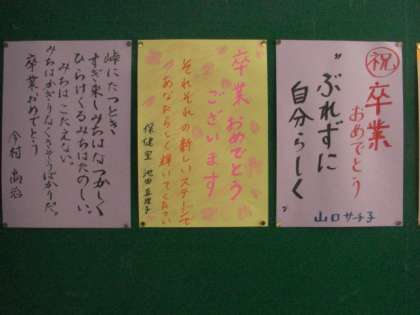 峠にたつとき
すぎ来しみちはなつかしく
ひらけくるみちはたのしい。
みちはこたえない。
みちはかぎりなくさそうばかりだ。
卒業おめでとう
今村
卒業おめでとう
ございます
それぞれの新しいステージで
あなたらしく輝いてください
保健室 池田
祝
卒業
おめでとう
"ぶれずに
自分らしく"
山口サチ子